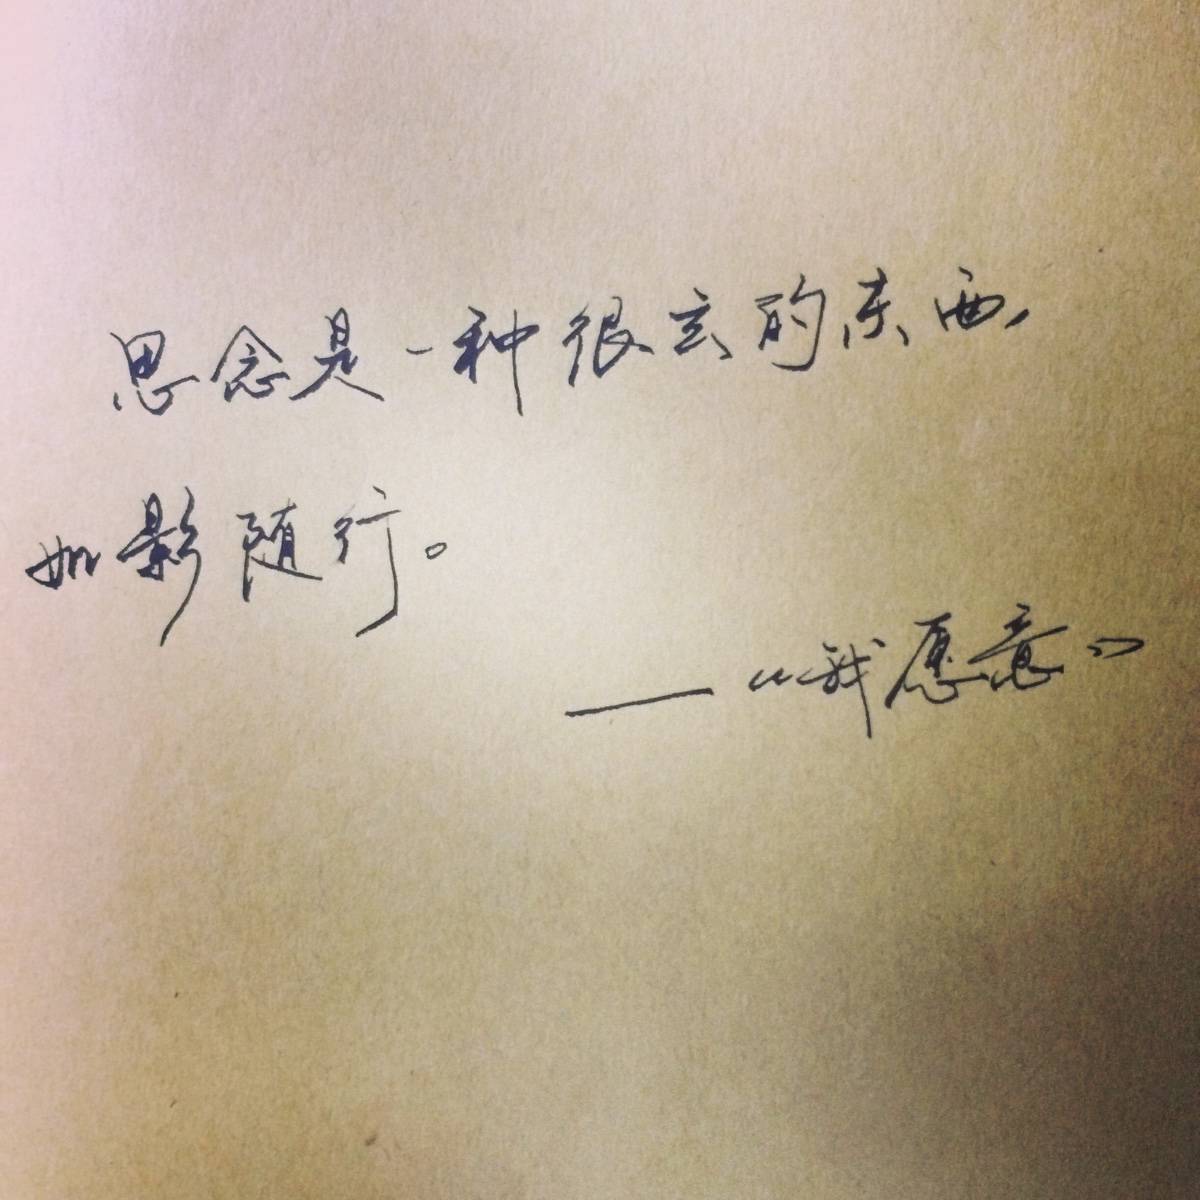 思念是一种很玄的东西,
如影随行。
——《我愿意》